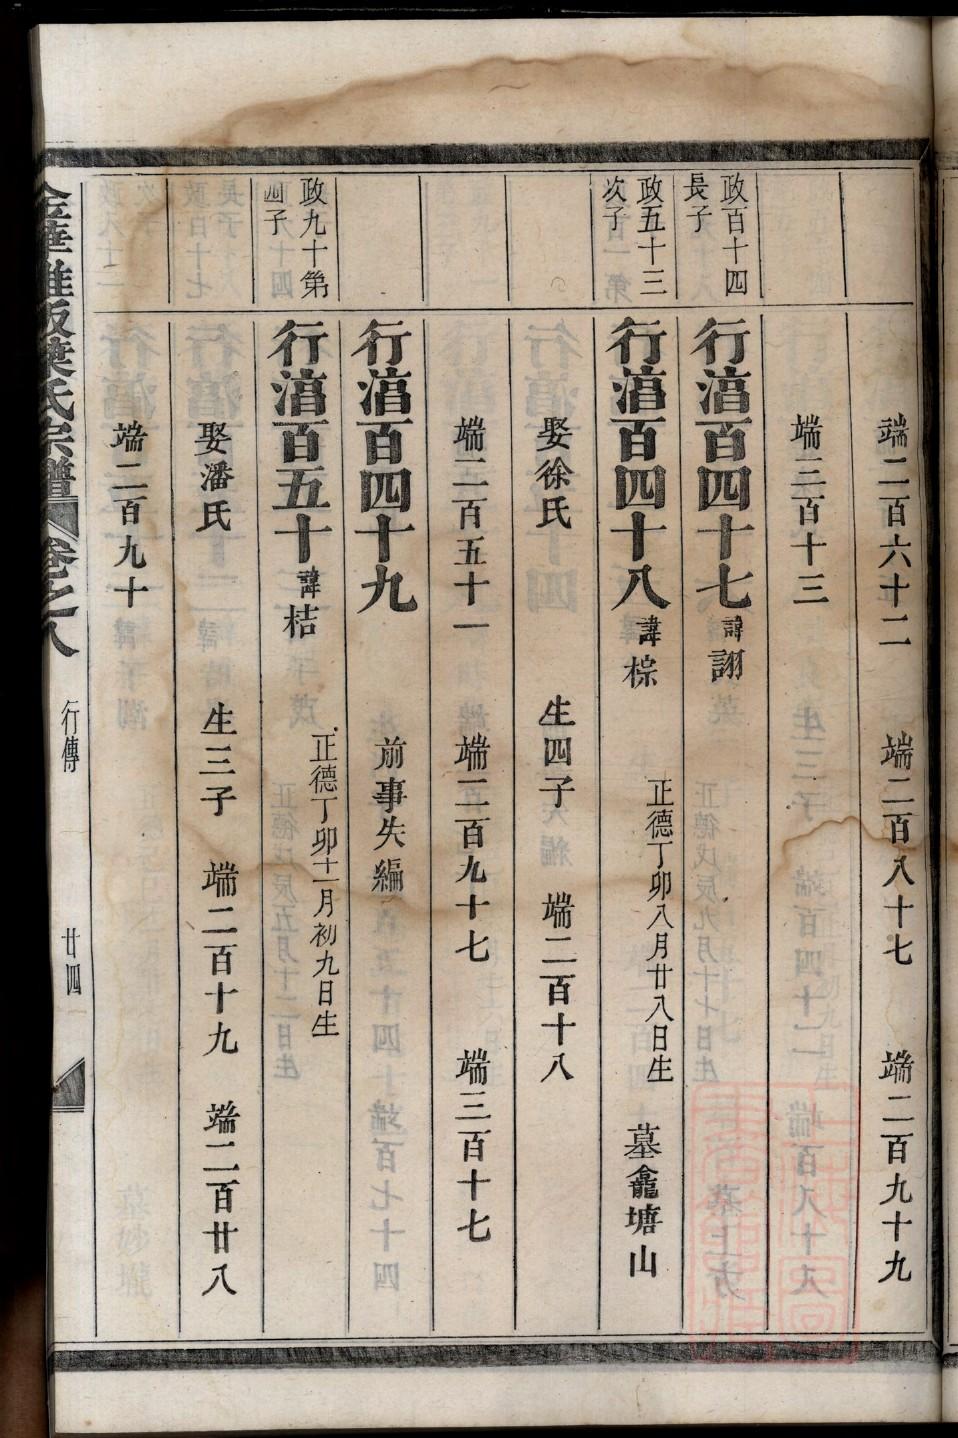 端二百六十二　端二百八十七　端二百九十九
端三百十三
政百十四
長子
行湻百四十七 諱詡
政五十三
次子
行湻百四十八 諱棕　正德丁卯八月廿八日生　墓龕塘山
娶徐氏　生四子　端二百十八
端二百五十一　端二百九十七　端三百十七
行湻百四十九　前事失編
政九十第
四子
行湻百五十 諱桔　正德丁卯十一月初九日生
娶潘氏　生三子　端二百十九　端二百廿八
端二百九十
金華雅畈葉氏宗譜　卷之八　行傳　廿四